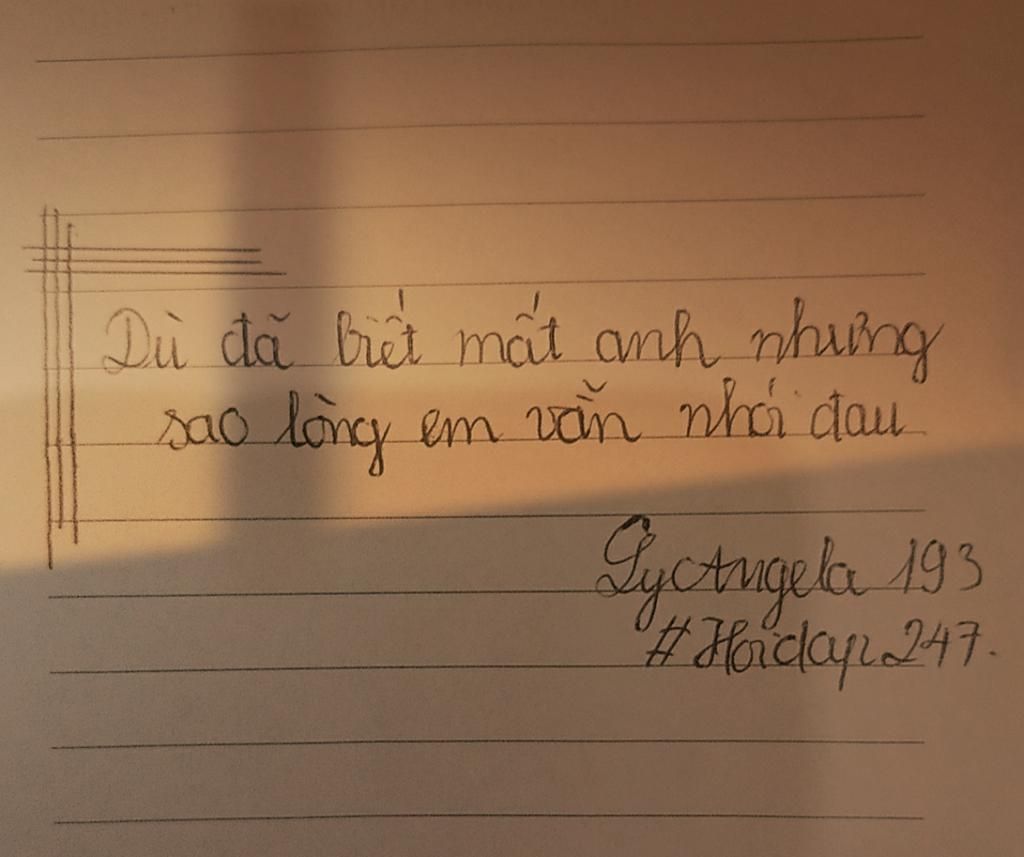 Dù đã biết mất anh nhưng
sao lòng em vẫn nhói đau
LycAngela 193
#Hoidap247.